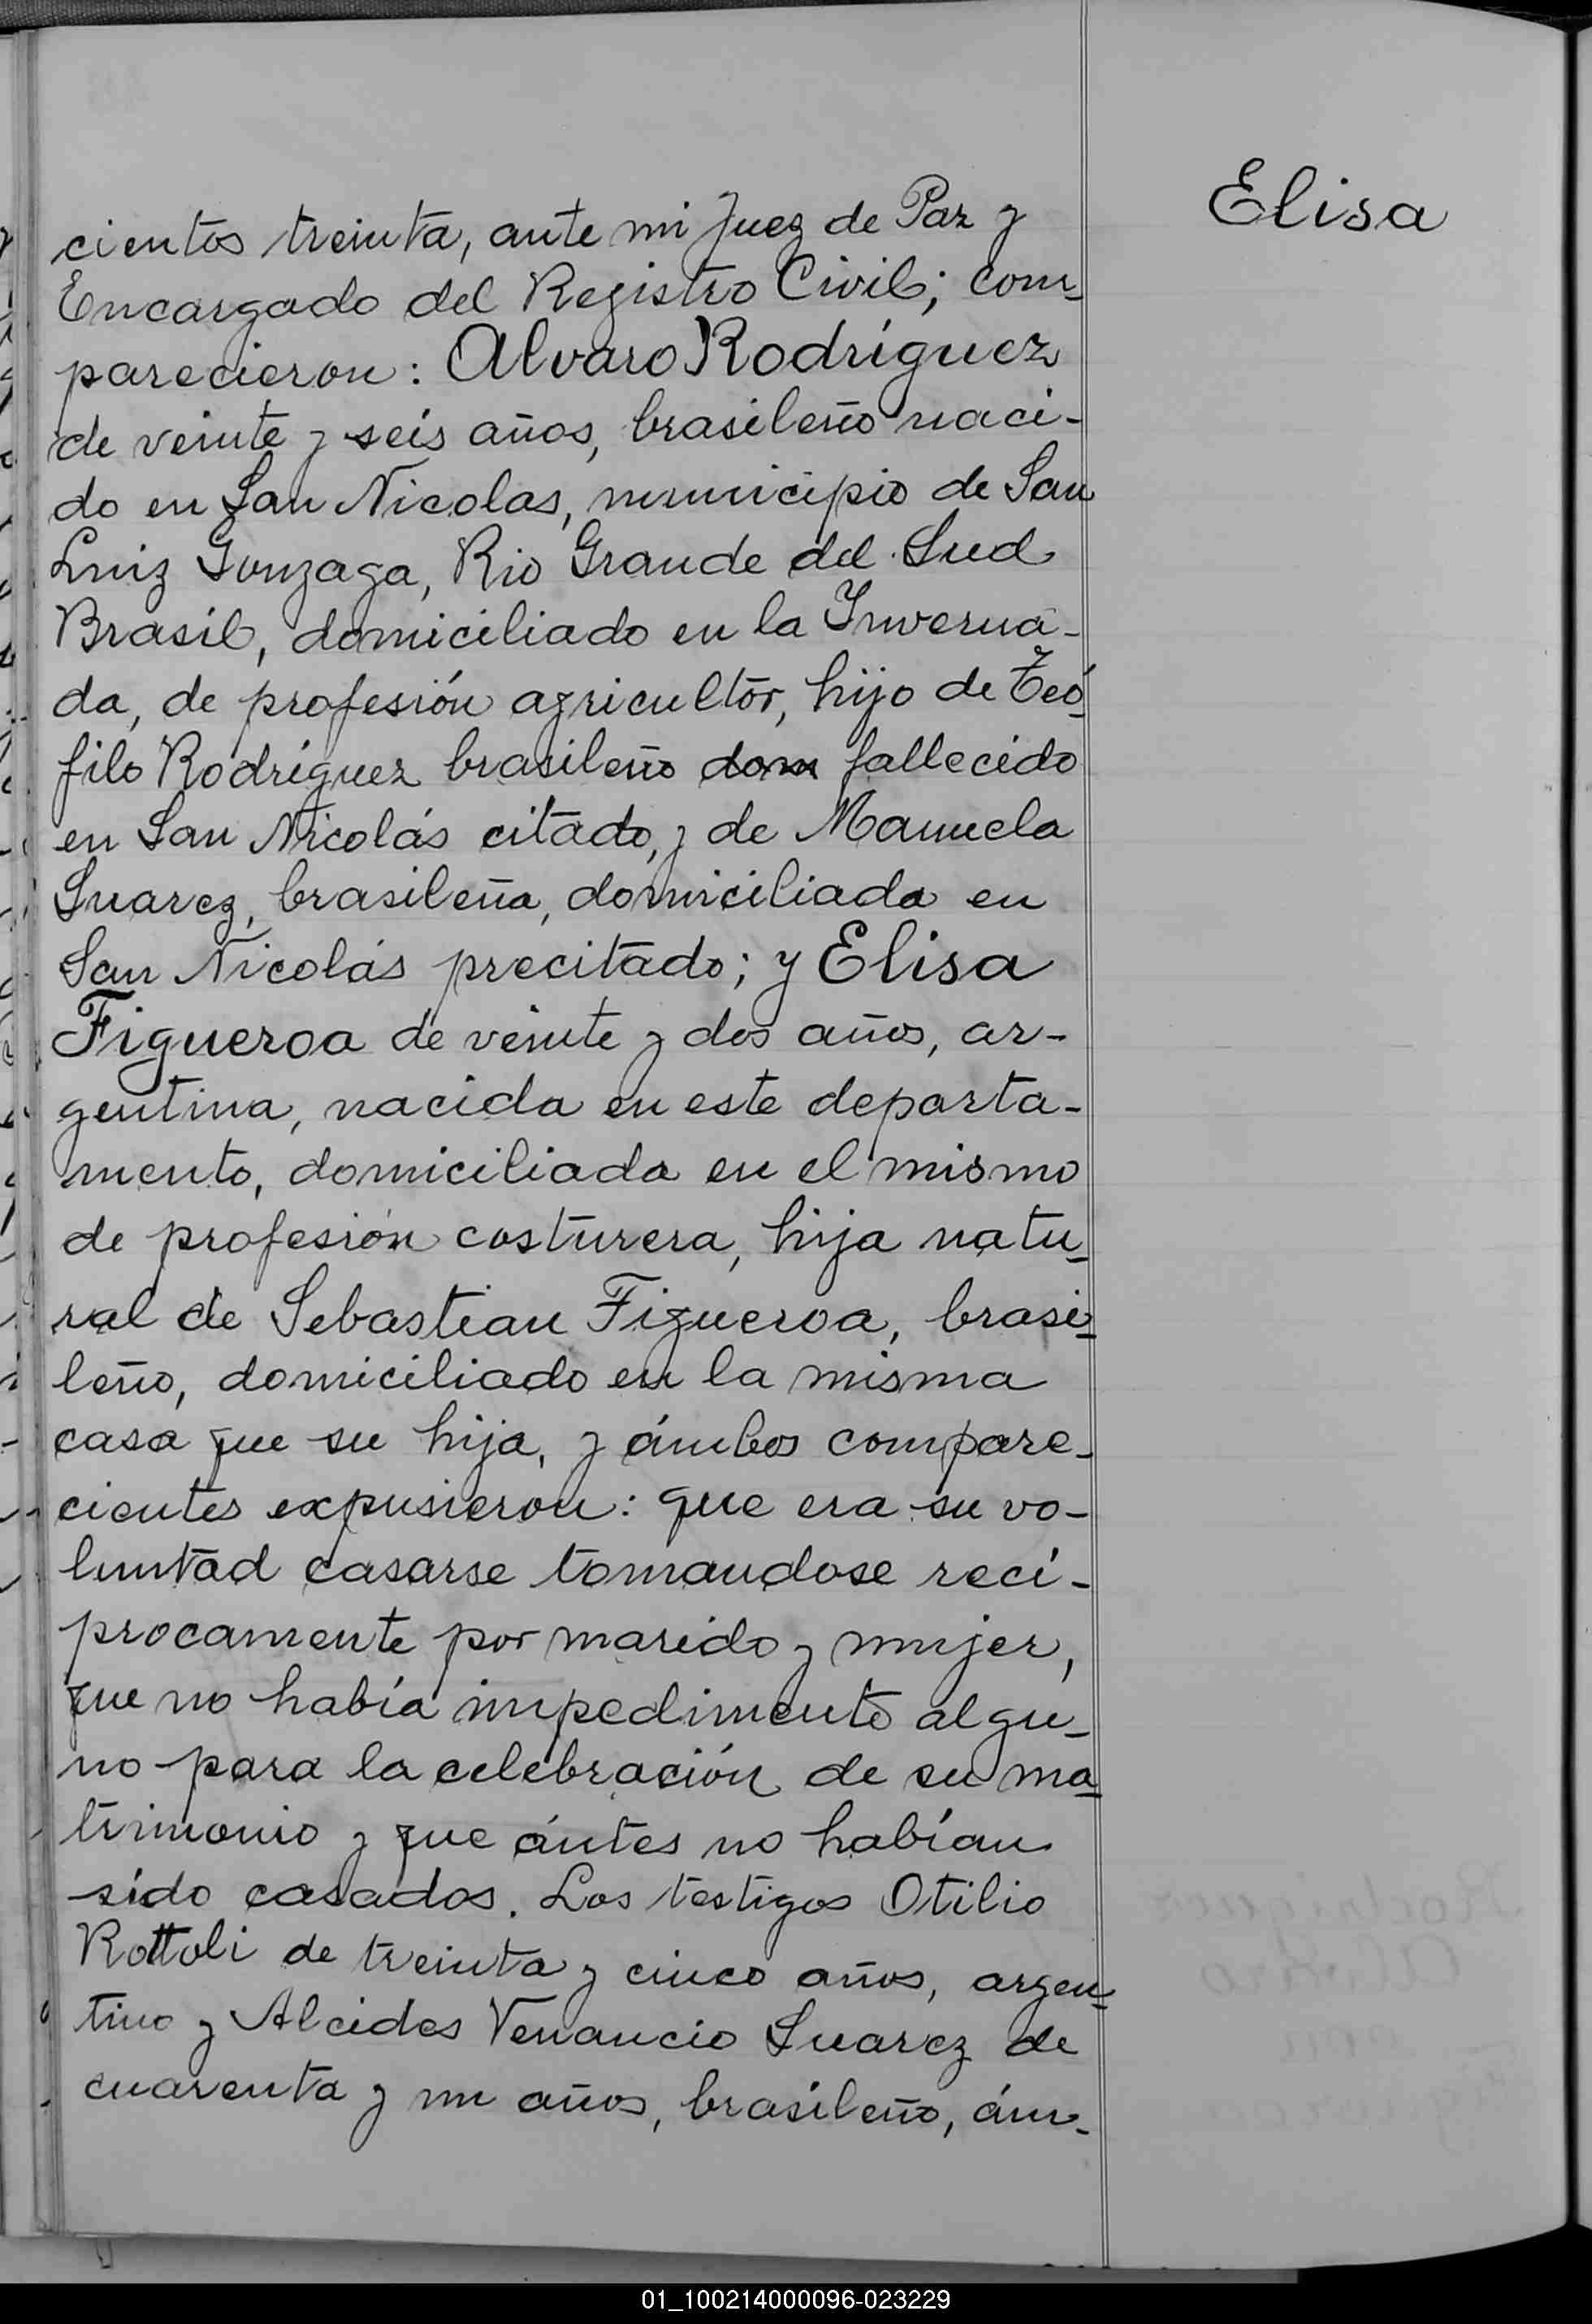 Elisa
cientos treinta, ante mi Juez de Paz y
Encargado del Registro Civil; com-
parecieron: Alvaro Rodríguez
de veinte y seis años, brasileño naci-
do en San Nicolas, municipio de San
Luiz Gonzaga, Rio Grande del Sud
Brasil, domiciliado en la Inverna-
da, de profesión agricultor, hijo de Teó-
filo Rodríguez brasileño dom fallecido
en San Nicolás citado, y de Manuela
Suarez, brasileña, domiciliada en
San Nicolás precitado; y Elisa
Figueroa de veinte y dos años, ar-
gentina, nacida en este departa-
mento, domiciliada en el mismo
de profesión costurera, hija natu-
ral de Sebastian Figueroa, brasi-
leño, domiciliado en la misma
casa que su hija, y ámbos compare-
cientes expusieron: que era su vo-
luntad casarse tomandose reci-
procamente por marido y mujer,
que no había impedimento algu-
no para la celebración de su ma-
trimonio y que ántes no habían
sido casados. Los testigos Otilio
Rottoli de treinta y cinco años, argen-
tino y Alcides Venancio Suarez de
cuarenta y un años, brasileño, ám-
01_100214000096-023229